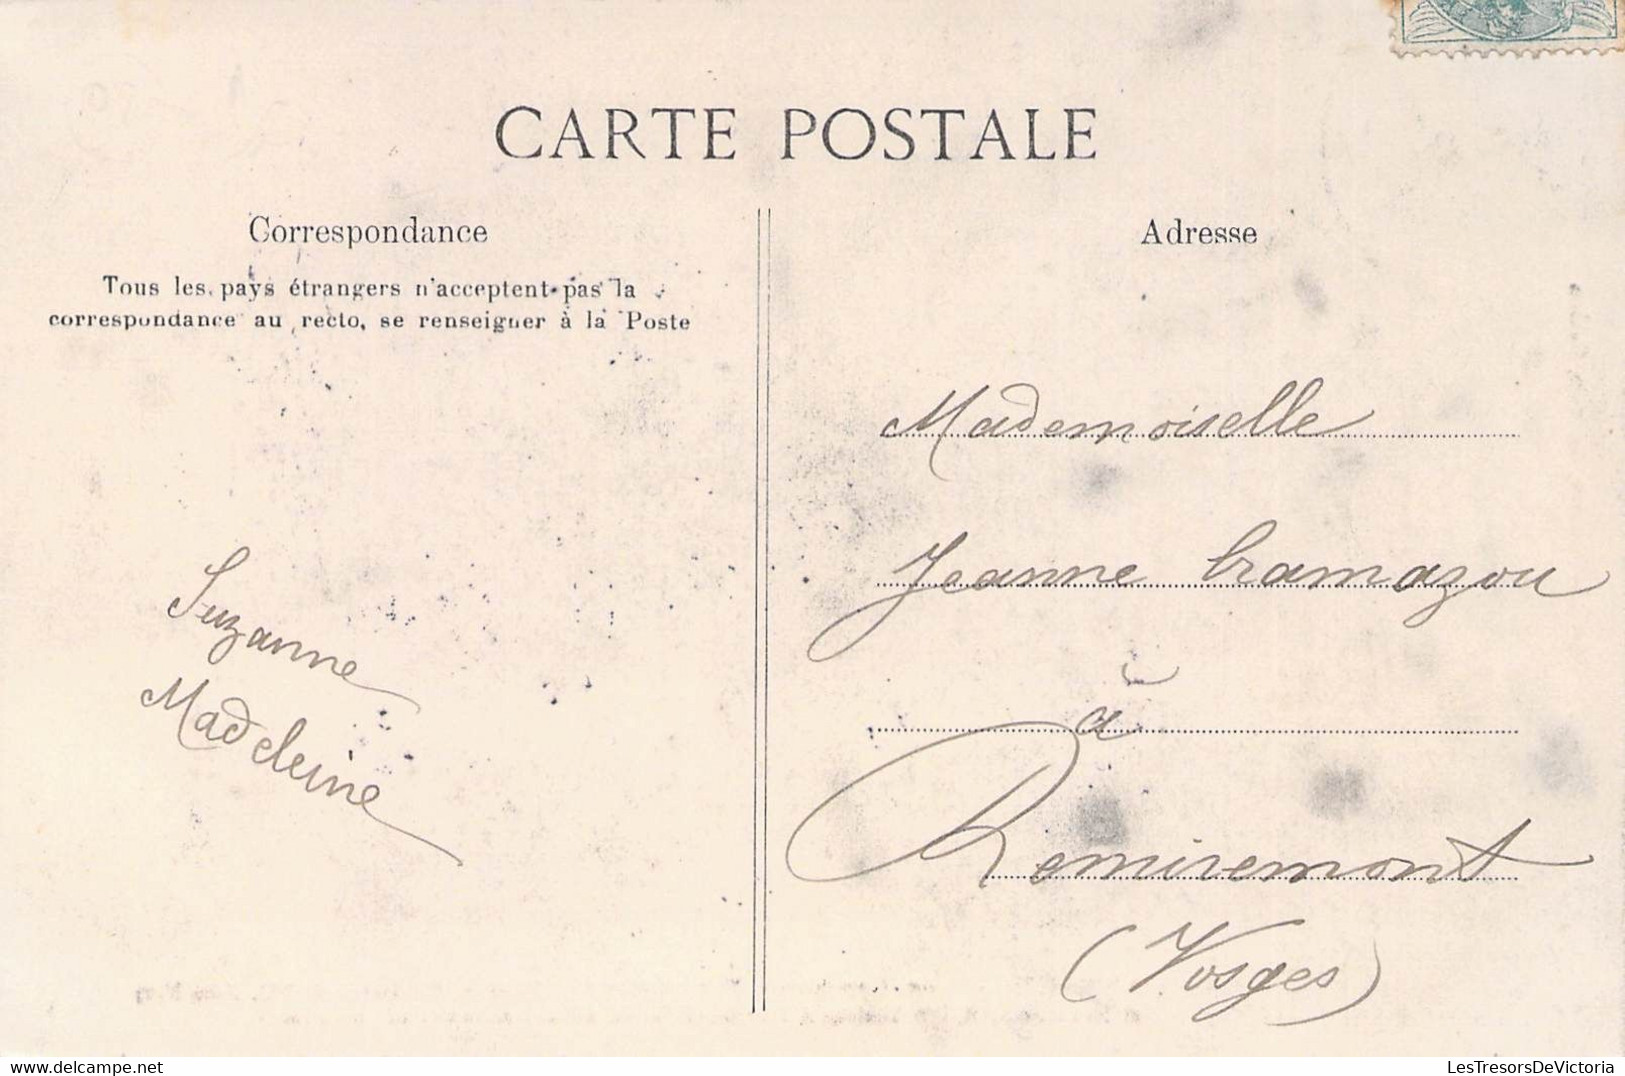 CARTE POSTALE
Correspondance
Tous les pays étrangers n'acceptent pas la
correspondance au recto, se renseigner à la Poste
Suzanne
Madeleine
Adresse
Mademoiselle
Jeanne Cramazou
à
Remiremont
(Vosges)
LesTresorsDeVictoria
www.delcampe.net